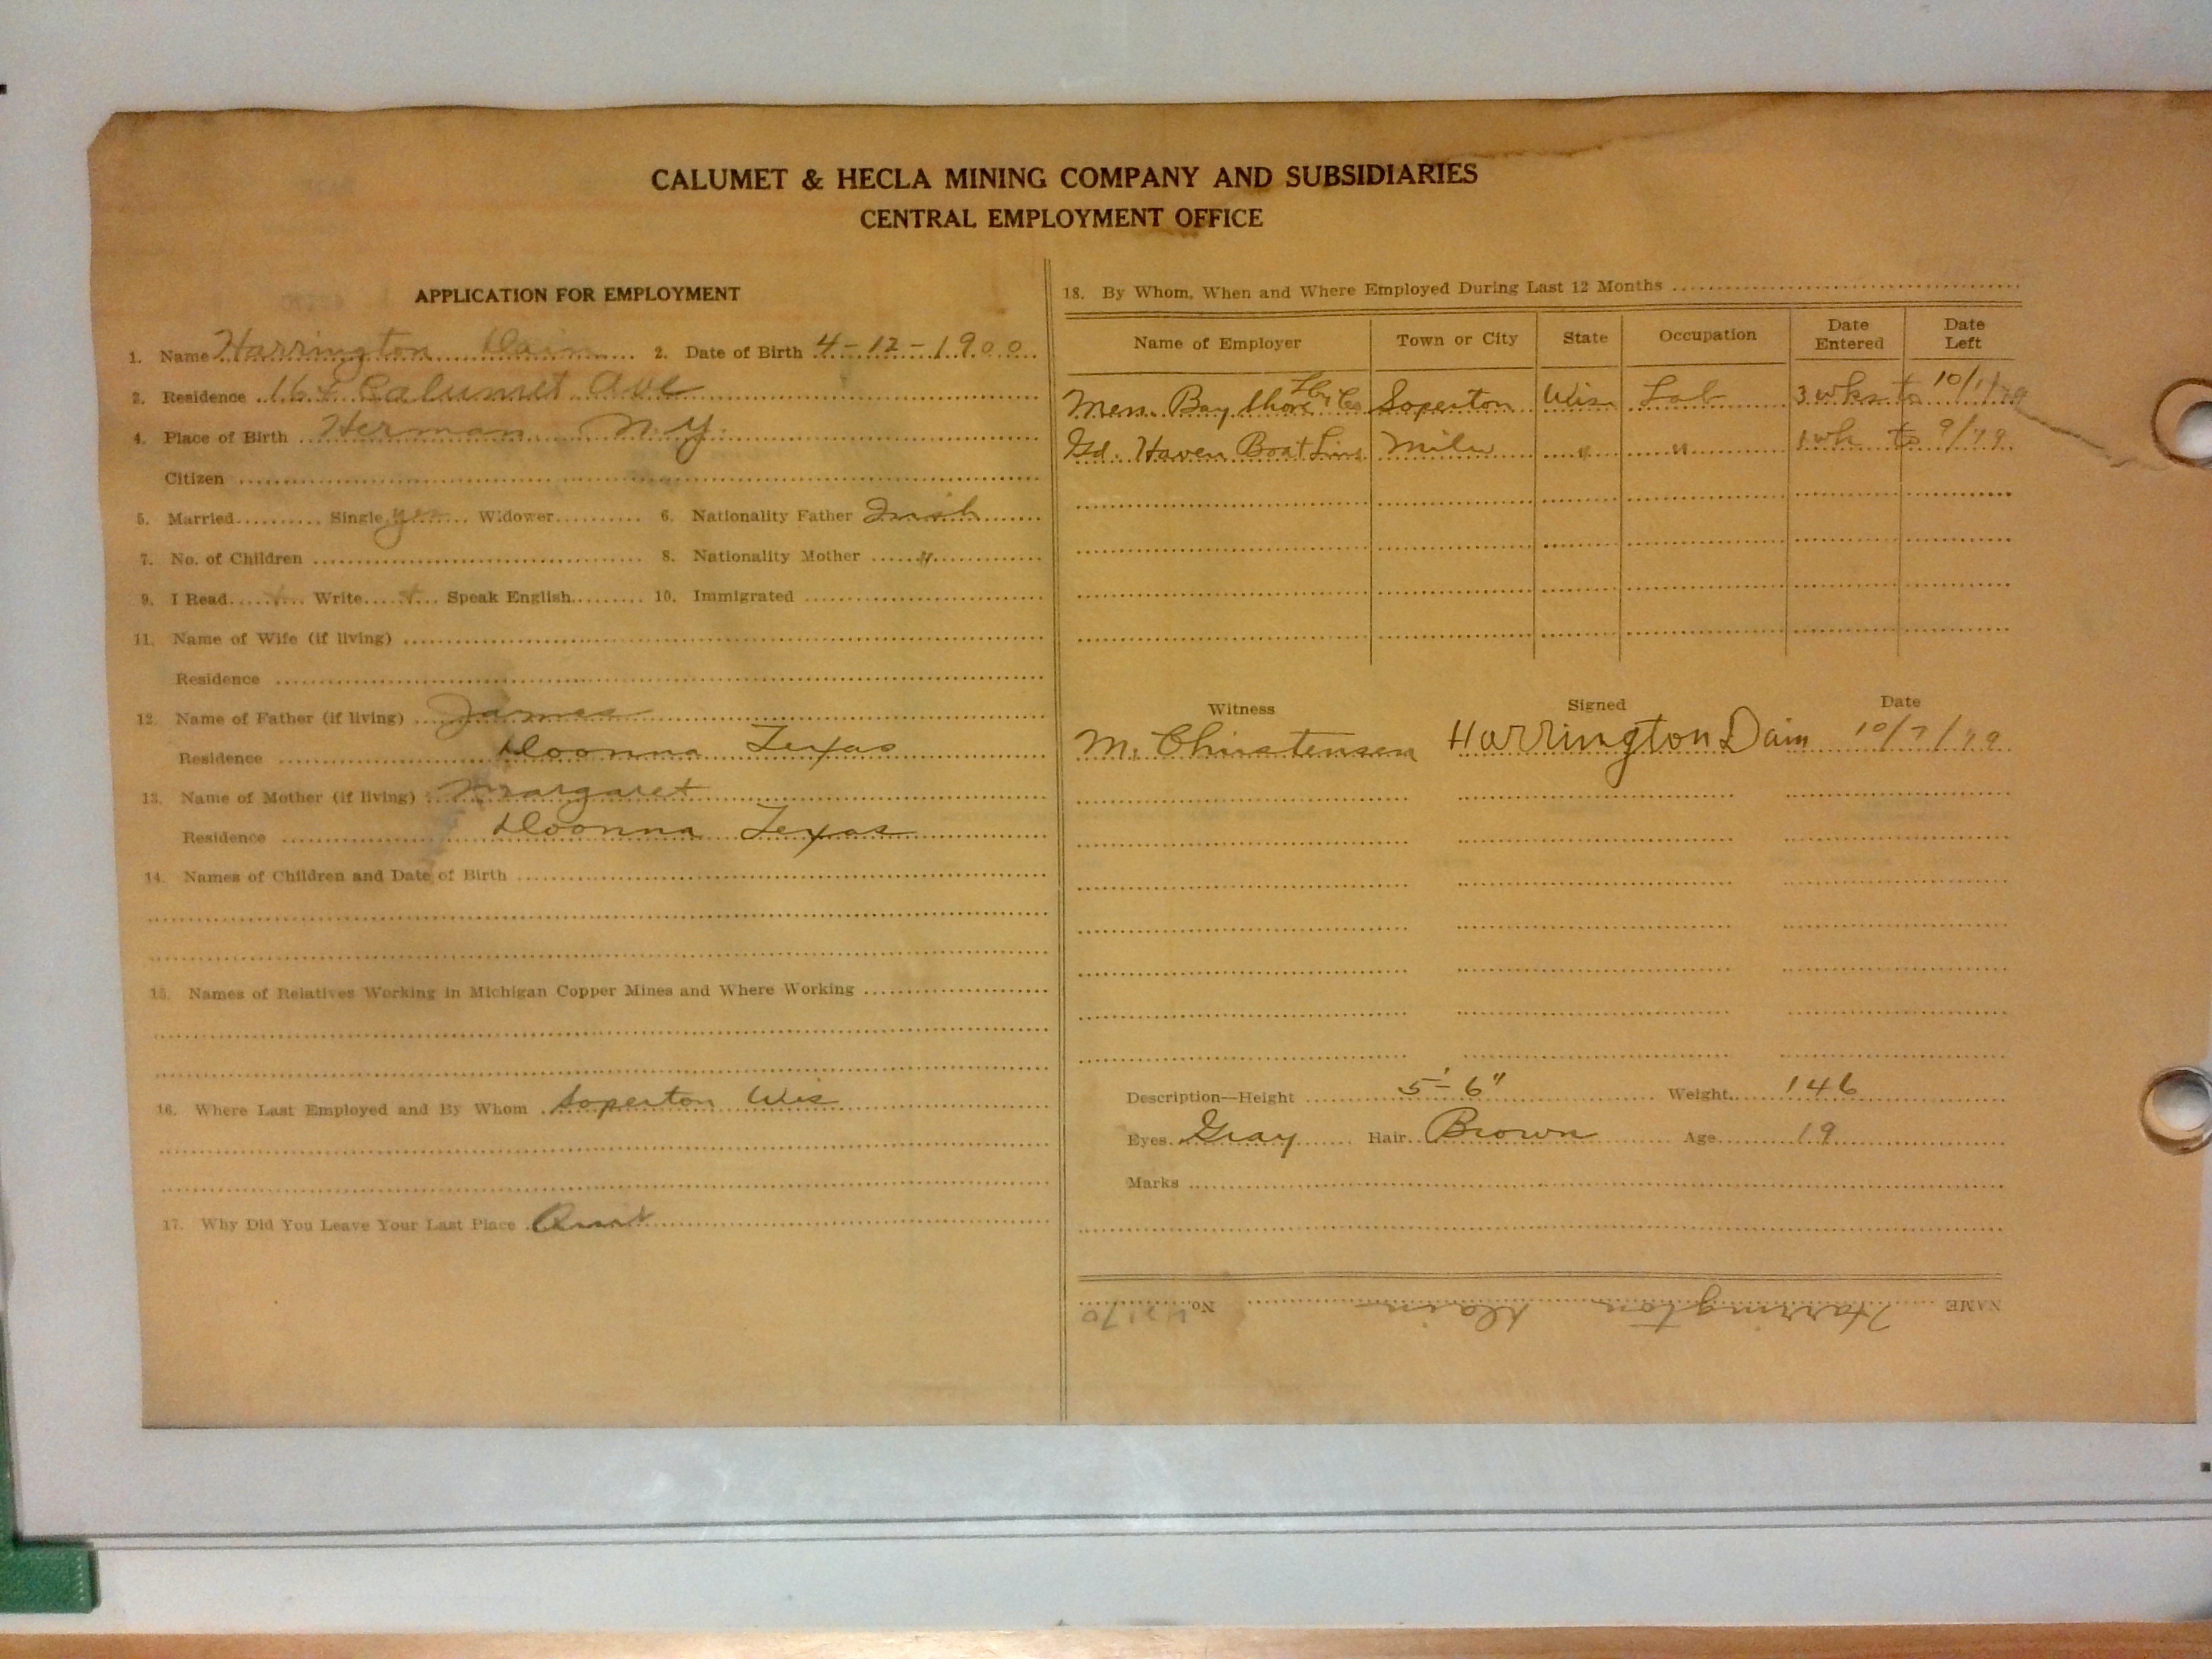 CALUMET & HECLA MINING COMPANY AND SUBSIDIARIES
CENTRAL EMPLOYMENT OFFICE
APPLICATION FOR EMPLOYMENT
1. Name Harrington Dain 2. Date of Birth 4-12-1900
3. Residence Calumet Ave
4. Place of Birth Herman N.Y.
Citizen
5. Married Single yes Widower 6. Nationality Father Irish
7. No. of Children 8. Nationality Mother "
9. I Read Write Speak English 10. Immigrated
11. Name of Wife (if living)
Residence
12. Name of Father (if living) James
Residence Doonna Texas
13. Name of Mother (if living) Margaret
Residence Doonna Texas
14. Names of Children and Date of Birth
15. Names of Relatives Working in Michigan Copper Mines and Where Working
16. Where Last Employed and By Whom Soperton Wis
17. Why Did You Leave Your Last Place
18. By Whom, When and Where Employed During Last 12 Months
Name of Employer Town or City State Occupation Date Entered Date Left
Men. Bay Shore Co Soperton Wis Lab 3 wks to 10/1/19
Gd. Haven Boat Line Milw " " 1 wk to 9/19
Witness Signed Date
M. Christensen Harrington Dain 10/7/19
Description—Height 5'-6" Weight 146
Eyes Gray Hair Brown Age 19
Marks
NAME Harrington Dain No.